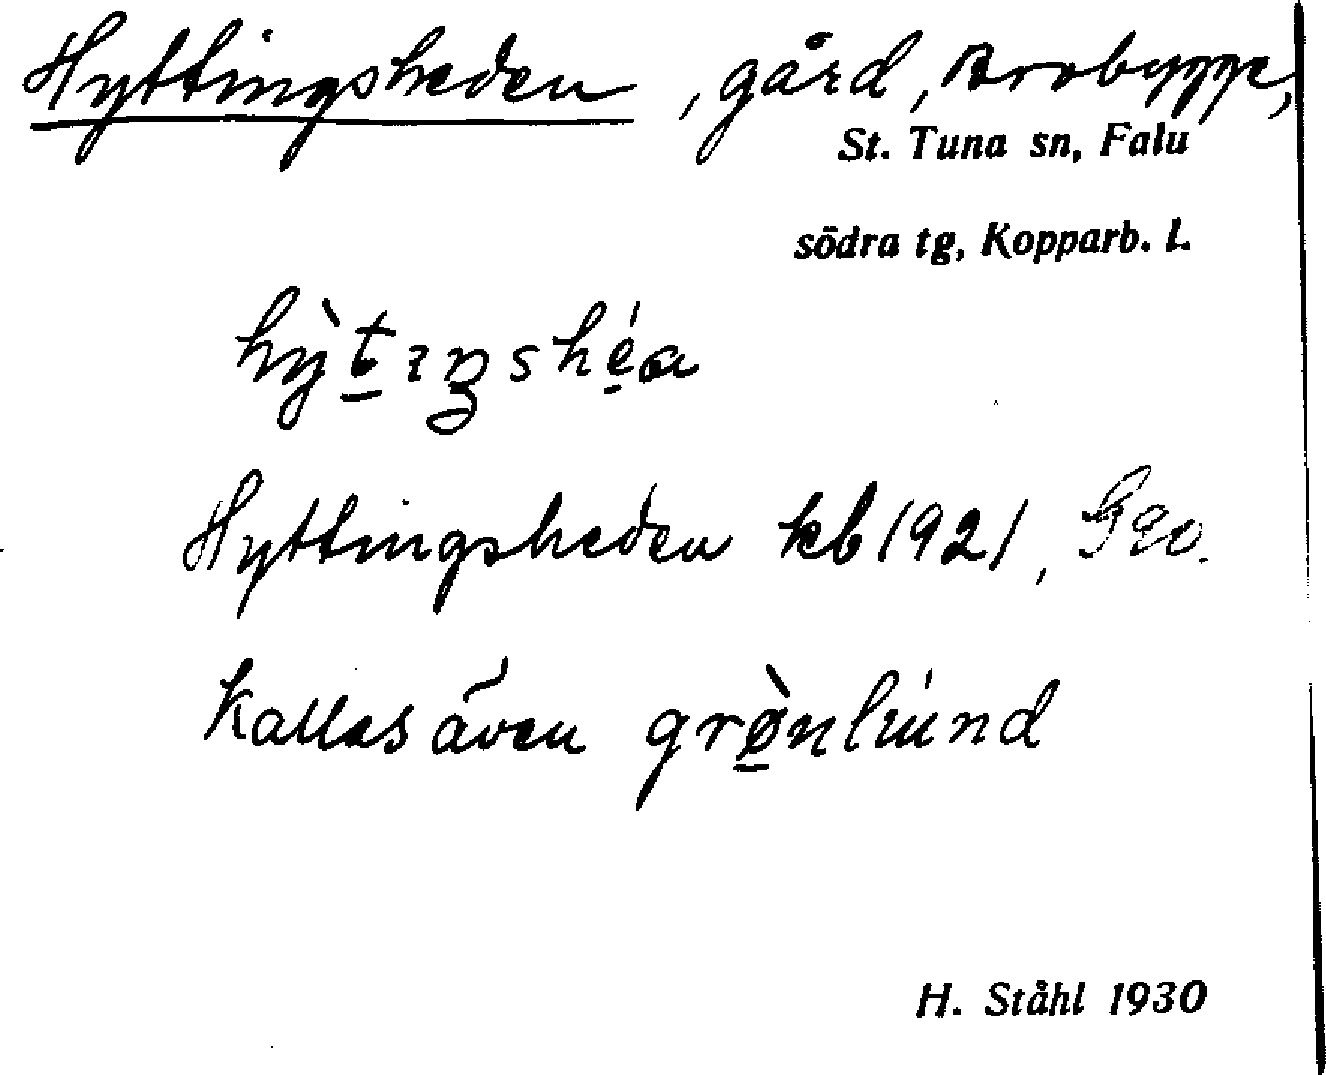 Hyttingsheden, gård, Brobygge,
St. Tuna sn, Falu
södra tg, Kopparb. l.
hỳt̠ıŋshé̠a
Hyttingsheden kb 1921, Geo.
Kallas även grø̠̀nlúnd
H. Ståhl 1930